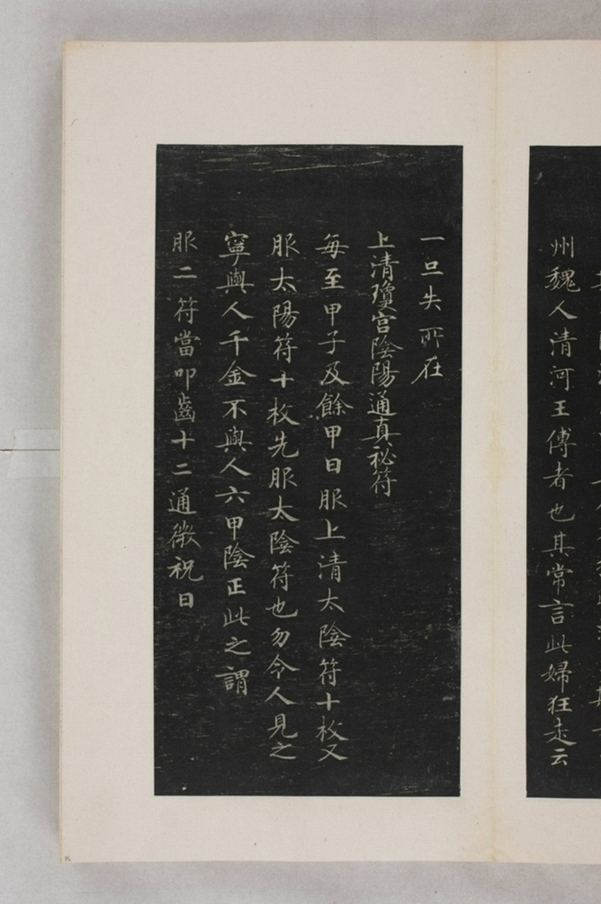 州魏人清河王傅者也其常言此婦狂走云
一旦失所在
上清瓊宮陰陽通真祕符
每至甲子及餘甲日服上清太陰符十枚又
服太陽符十枚先服太陰符也勿令人見之
寧與人千金不與人六甲陰正此之謂
服二符當叩齒十二通微祝曰